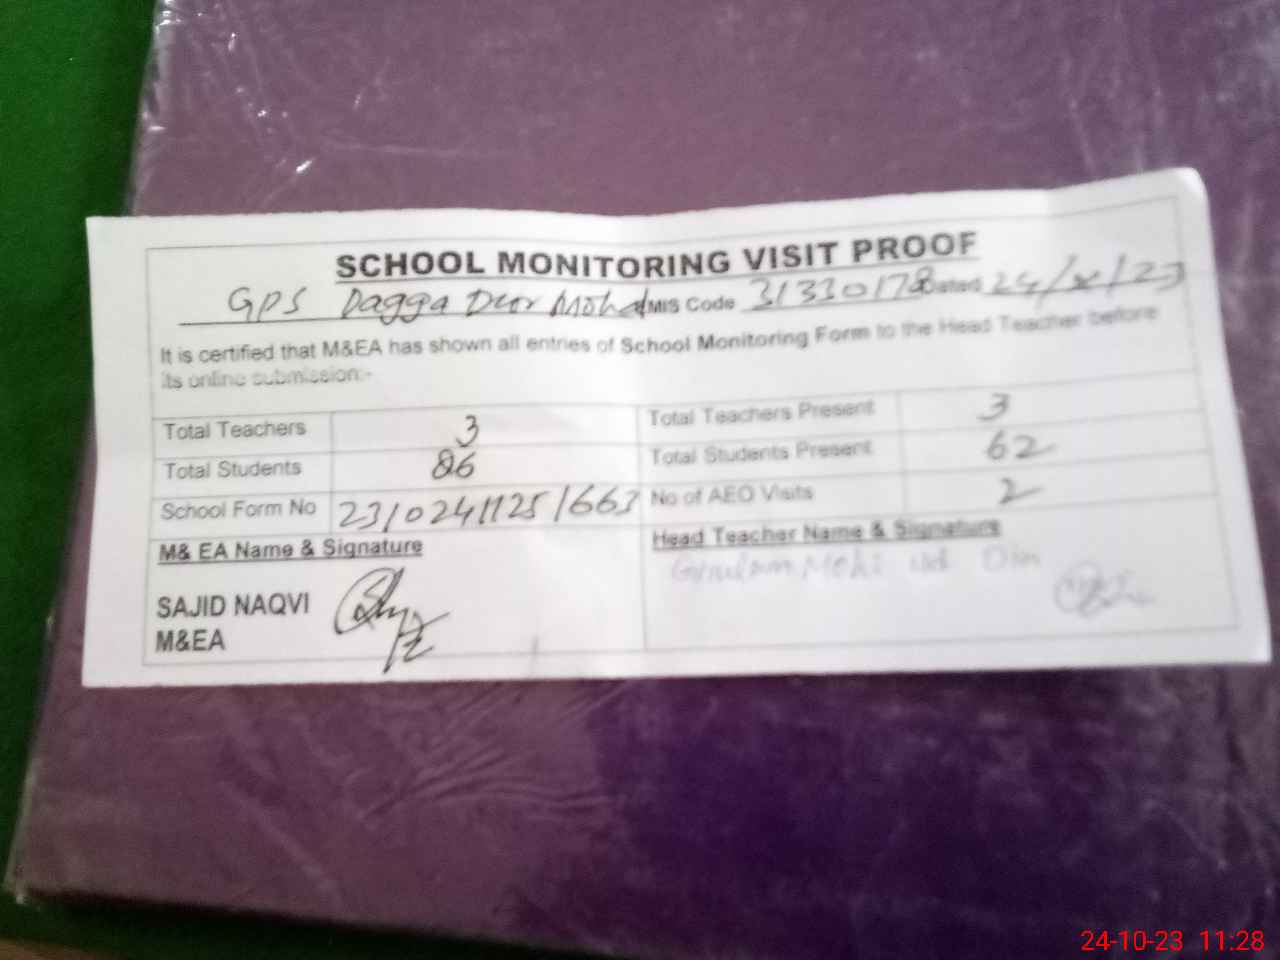 SCHOOL MONITORING VISIT PROOF
GPS Dagga Dur Mohd MIS Code 31330178 Dated 24/x/23
It is certified that M&EA has shown all entries of School Monitoring Form to the Head Teacher before
its online submission:-
Total Teachers 3 Total Teachers Present 3
Total Students 86 Total Students Present 62
School Form No 23102411251663 No of AEO Visits 2
M& EA Name & Signature Head Teacher Name & Signature
Ghulam Mohi ud Din
SAJID NAQVI
M&EA
24-10-23 11:28